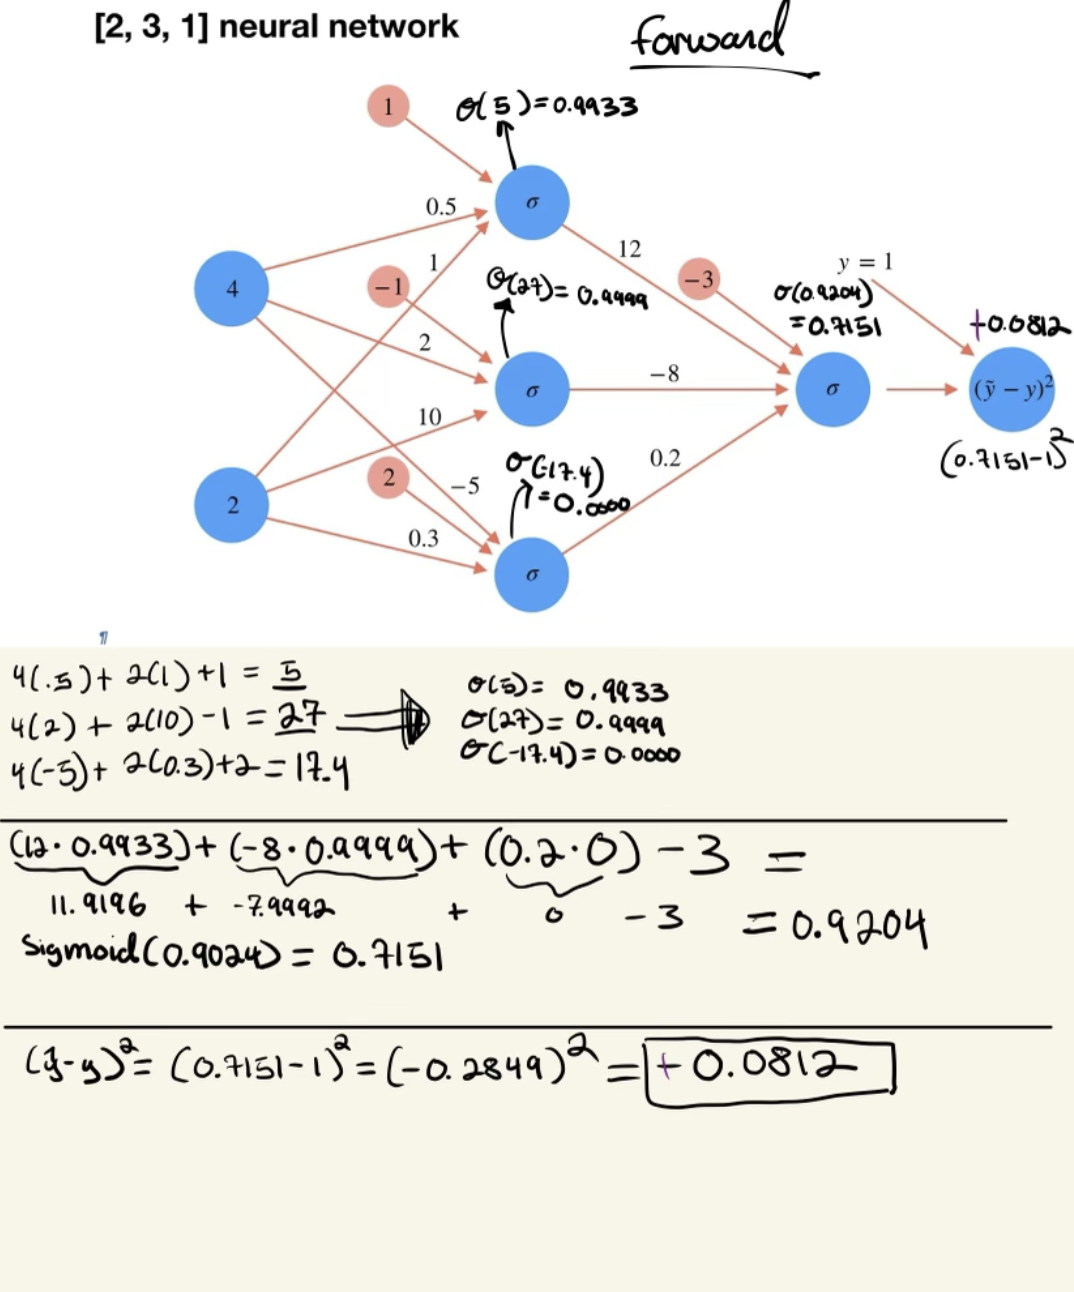 [2, 3, 1] neural network
forward
1
σ(5)=0.9933
σ
0.5
12
1
y = 1
4
−1
σ(27)= 0.9999
−3
σ(0.9204)
=0.7151
+0.0812
2
σ
−8
σ
(ỹ − y)²
10
(0.7151-1)²
2
σ(-17.4)
=0.0000
0.2
−5
2
0.3
σ
¶
4(.5)+ 2(1)+1 = 5
4(2) + 2(10) -1 = 27
4(-5)+ 2(0.3)+2=17.4
σ(5)= 0.9933
σ(27)= 0.9999
σ(-17.4)=0.0000
(12· 0.9933)+ (-8·0.9999)+ (0.2·0) -3 =
11.9196 + -7.9992 + 0 -3 = 0.9204
Sigmoid(0.9024) = 0.7151
(ỹ-y)²= (0.7151-1)²=(-0.2849)² = +0.0812